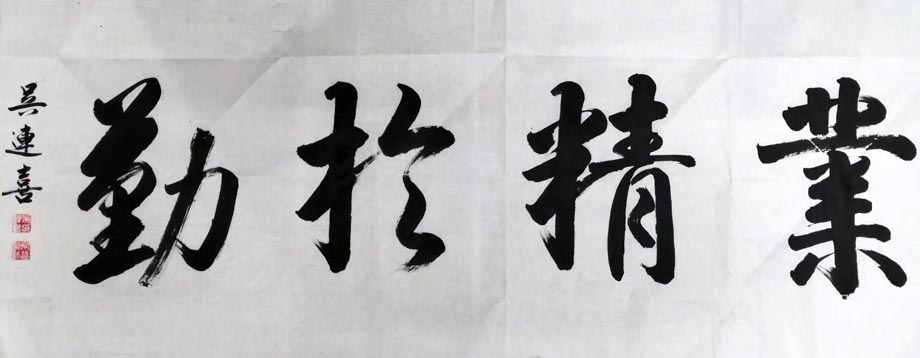 業精於勤
吳連喜